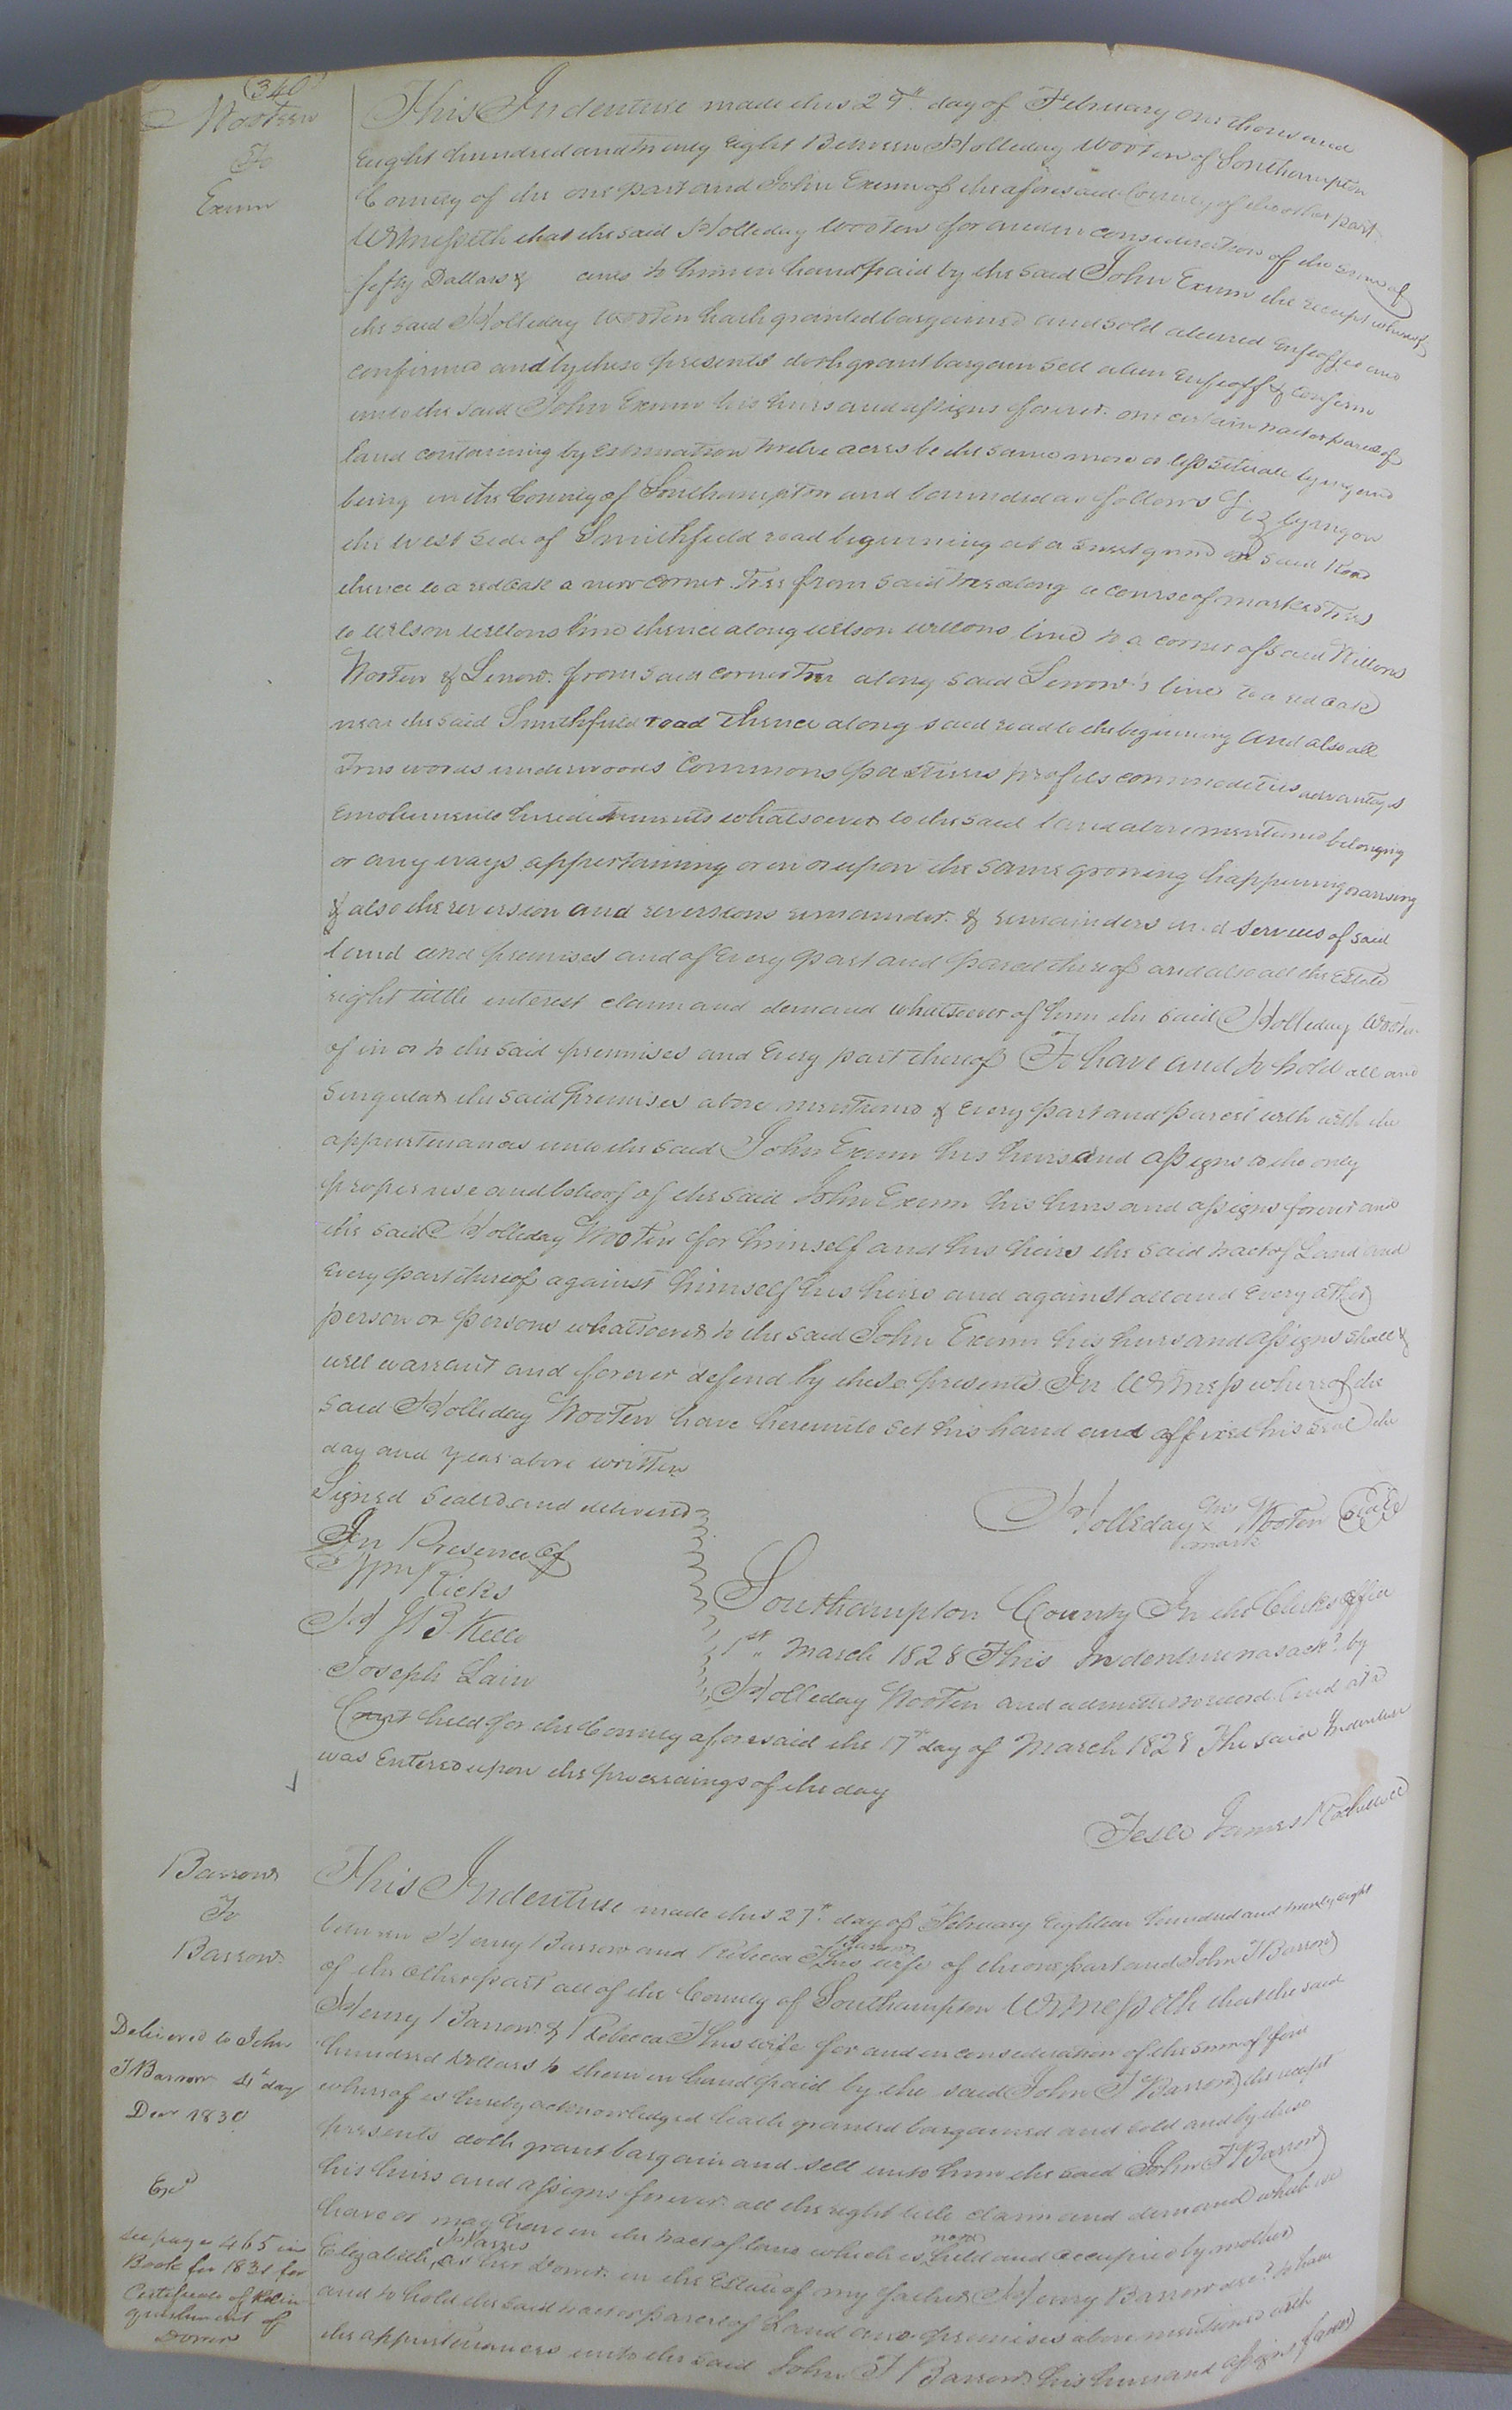 (340)
Wooten
To
Exum
This Indenture made this 29th day of February one thousand
Eight hundred and twenty Eight Between Holleday Wooten of Southampton
County of the one part and John Exum of the aforesaid County of the other part
Witnesseth that the said Holleday Wooten for and in consideration of the sum of
fifty Dollars & cents to him in hand paid by the said John Exum the receipt whereof
the said Holleday Wooten hath granted bargained and sold aliened Enfeoffee and
confirmed and by these presents doth grant bargain sell alien Enfeoff & confirm
unto the said John Exum his heirs and assigns forever one certain tract or parcel of
land containing by Estimation twelve acres be the same more or less situate lying and
being in the County of Southampton and bounded as follows Viz lying on
the west side of Smithfield road beginning at a sweet gum on said Road
thence to a red oak a new corner Tree from said tree along a course of marked Trees
to Wilson Willons line thence along Wilson Willons line to a corner of said Willons
Wooten & Lenow. from said corner Tree along said Lenow's line to a red oak
near the said Smithfield road thence along said road to the beginning And also all
Trees woods underwoods Commons pastures profits commodities advantages
Emoluments hereditaments whatsoever to the said land above mentioned belonging
or any ways appertaining or in or upon the same growing happening or arising
& also the reversion and reversions remainder & remainders and services of said
land and premises and of Every part and parcel thereof and also all the Estate
right tittle interest claim and demand whatsoever of him the said Holleday Wooten
of in or to the said premises and Every part thereof To have and to hold all and
Singular the said premises above mentioned & Every part and parcel with with the
appurtenances unto the said John Exum his heirs and assigns to the only
proper use and behoof of the said John Exum his heirs and assigns forever and
the said Holleday Wooten for himself and his heirs the said tract of Land and
Every part thereof against himself his heirs and against all and Every other
person or persons whatsoever to the said John Exum his heirs and assigns shall &
will warrant and forever defend by these presents In Witness whereof the
said Holleday Wooten have hereunto set his hand and affixed his seal the
day and year above written
Signed Sealed and delivered
In Presence of
Wm Ricks
H J B Kello
Joseph Lain
his
Holleday x Wooten Seal
mark
Southampton County In the Clerks office
1st March 1828 This Indenture was ackd. by
Holleday Wooten and admitted to record And at a
Court held for the County aforesaid the 17th day of March 1828 The said Indenture
was Entered upon the proceedings of the day
Teste James Rochelle
Barrow
To
Barrow
Delivered to John
T Barrow 4th day
Decr 1830
Exd
See page 465 in
Book for 1831 for
Certificate of Relin
quishment of
Dower
This Indenture made this 27th. day of February Eighteen hundred and twenty eight
between Henry Barrow and Rebecca T Barrow his wife of the one part and John T Barrow
of the other part all of the County of Southampton Witnesseth that the said
Henry Barrow & Rebecca T his wife for and in consideration of the sum of five
hundred Dollars to them in hand paid by the said John T Barrow the receipt
whereof is hereby acknowledged hath granted bargained and sold and by these
presents doth grant bargain and sell unto him the said John T Barrow
his heirs and assigns forever all the right title claim and demand which we
have or may have in the tract of land which is now held and occupied by mother
Elizabeth Harris as her Dower in the Estate of my father Henry Barrow decd. to have
and to hold the said tract or parcel of Land and premises above mentioned with
the appurtenances unto the said John T Barrow his heirs and assigns forever